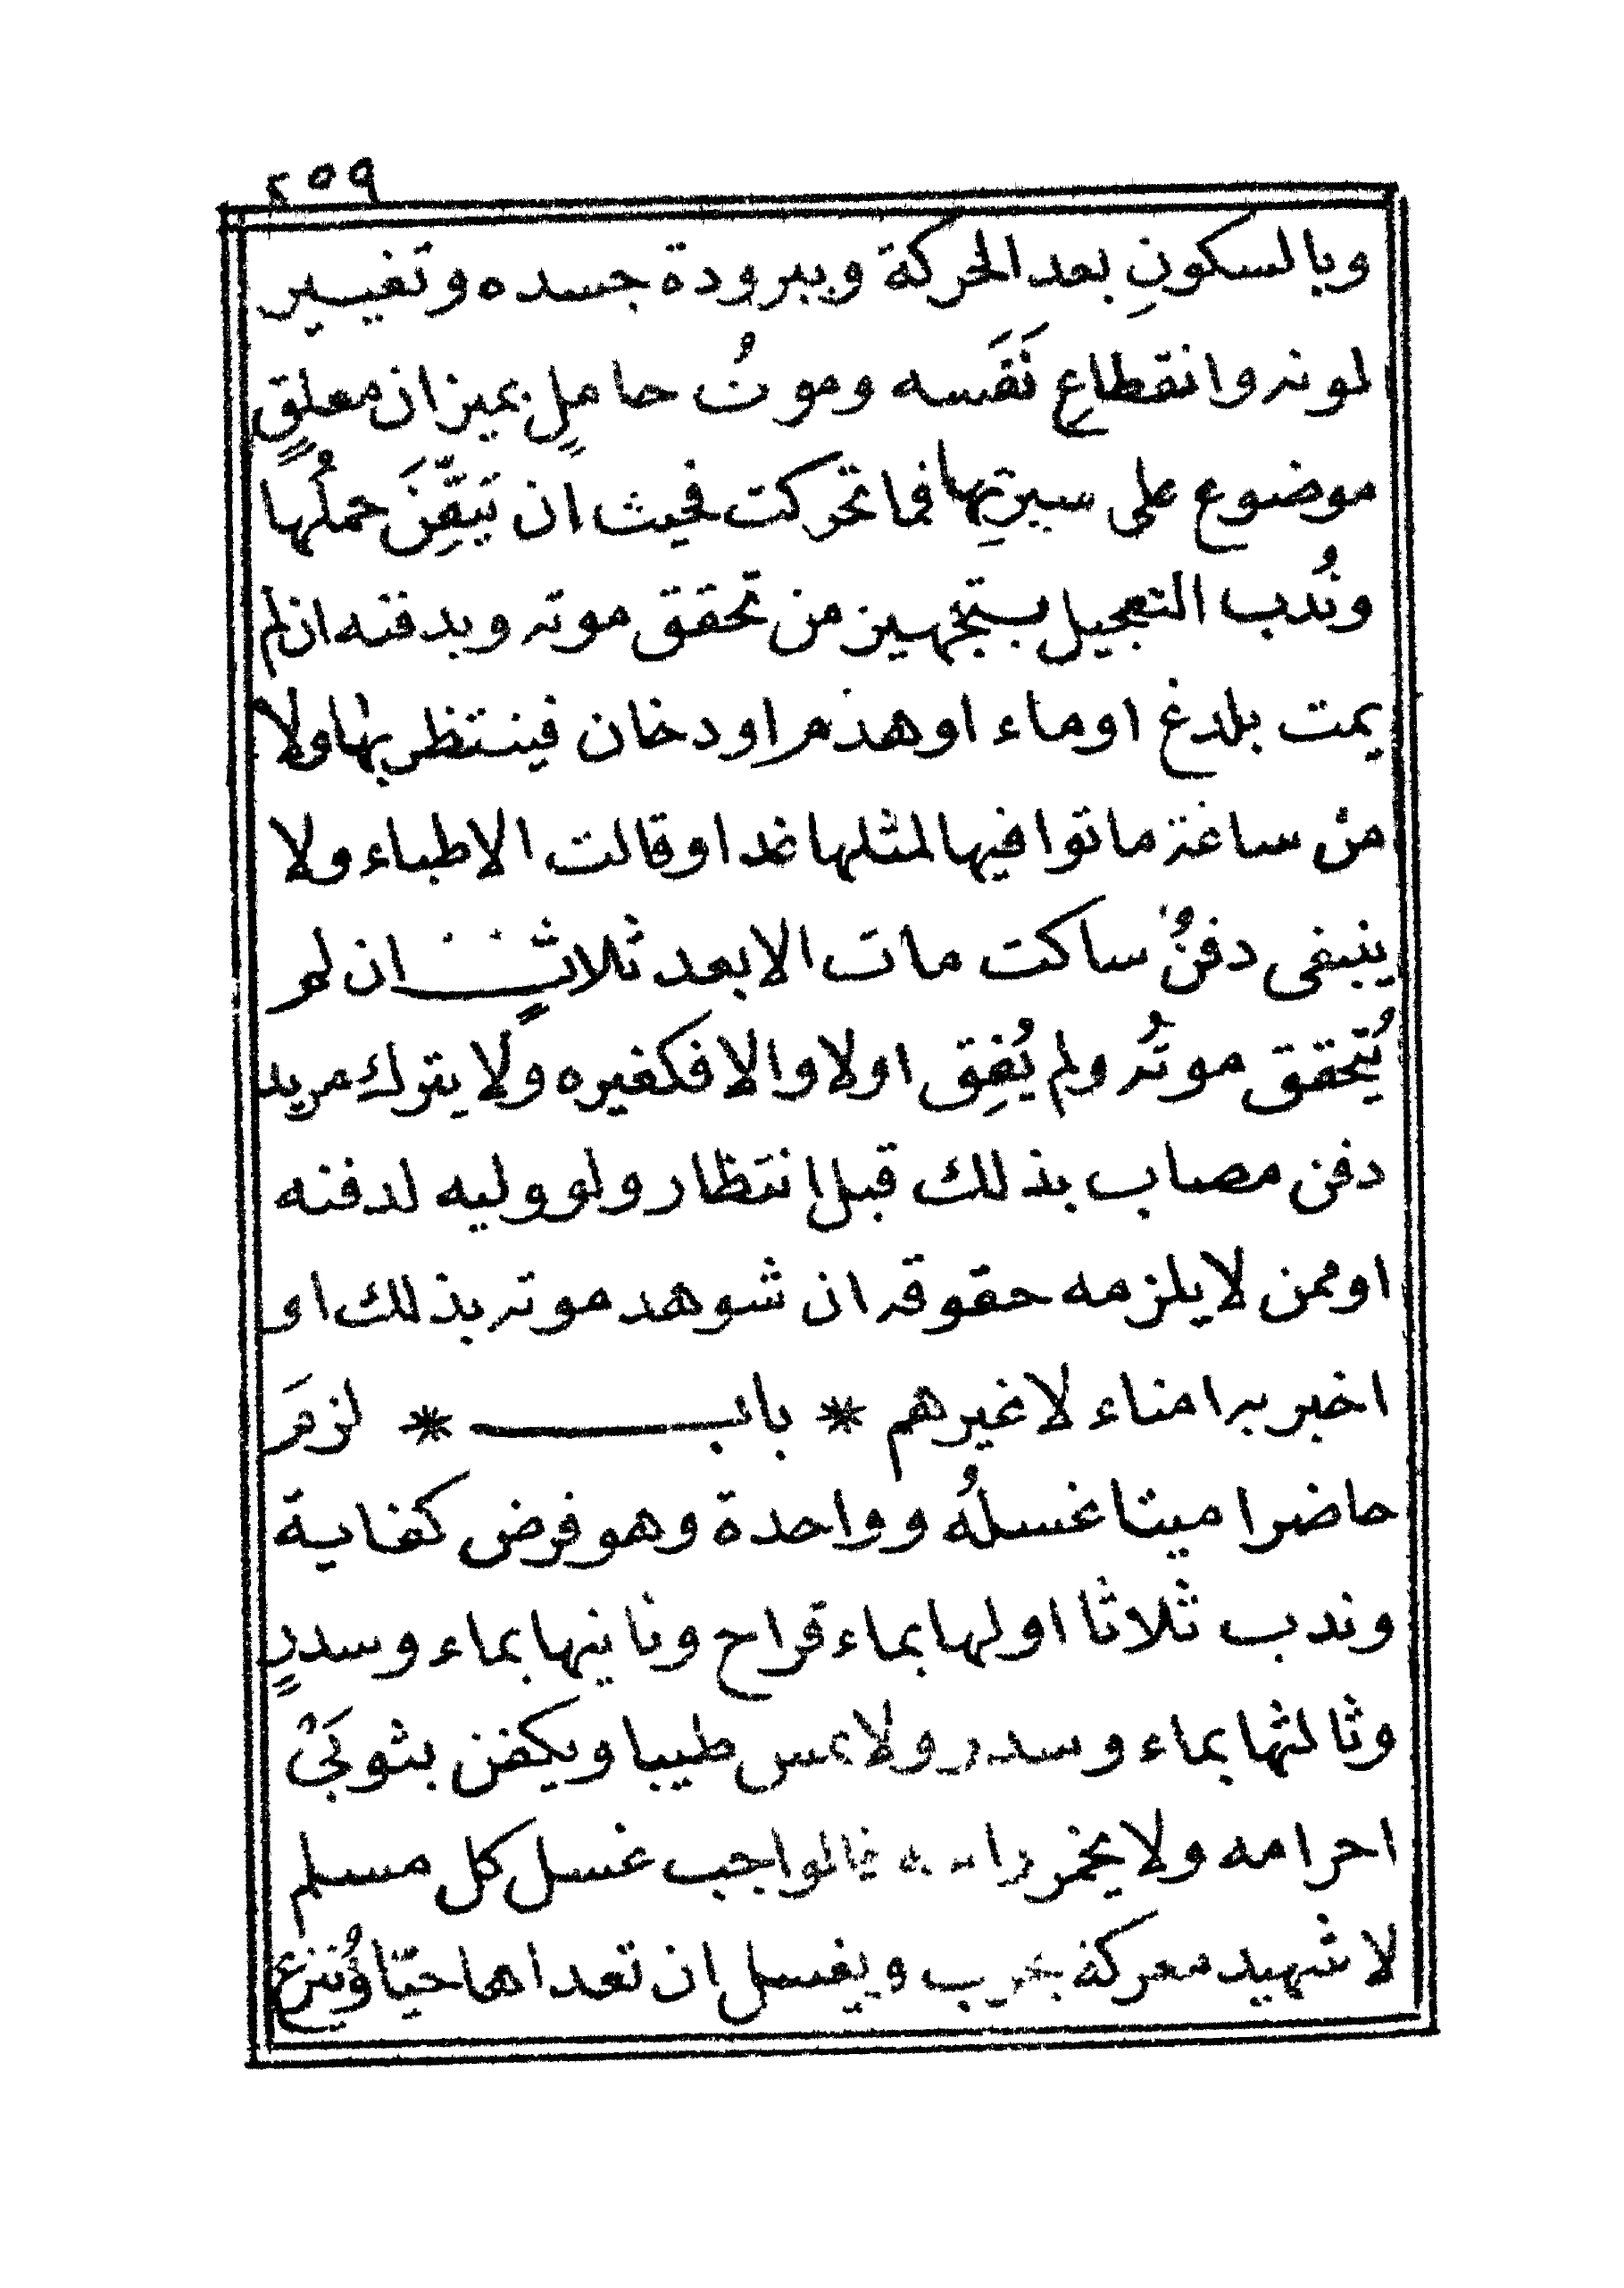 ٢٥٩
وبالسكونِ بعد الحركة وببرودة جسده وتغيير
لونه وانقطاعِ نَفَسه وموتُ حاملٍ بميزان معلقٍ
موضوع على سرتِها فما تحركت فحيث ان تيقِّنَ حملُها
ونُدب التعجيل بتجهيز من تحقق موته وبدفنه ان لم
يمت بلدغ او ماء او هدم او دخان فينتظر بها ولا
منْ ساعة ماتوا فيها لمثلها غدا وقالت الاطباء ولا
ينبغى دفنُ ساكت مات الا بعد ثلاثٍ ان لم
يُتحقق موتُه ولم يُفِق اولا والا فكغيره ولا يترك مريد
دفن مصاب بذلك قبل انتظار ولو وليه لدفنه
او ممن لا يلزمه حقوقه ان شوهد موته بذلك او
اخبر به امناء لا غيرهم * باب * لزمَ
حاضرا ميتا غسلُه وواحدة وهو فرض كفاية
وندب ثلاثا اولها بماء قراح وثانيها بماء وسدرٍ
وثالثها بماء وسدر ولا يمس طيبا ويكفن بثوبَىْ
احرامه ولا يخمر راسه فالواجب غسل كل مسلم
لا شهيد معركة بحرب ويغسل ان تعداها حيّا ويُنزع